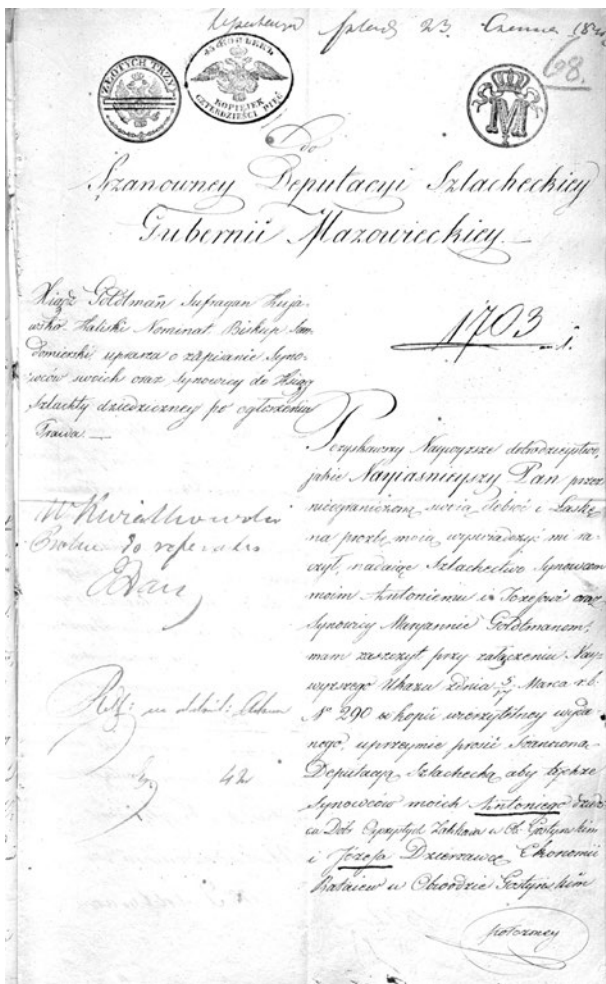 23 Czerwca
68.
ZŁOTYCH TRZY
45 КОПѢЕКЪ
KOPIEJEK CZTERDZIEŚCI PIĘĆ
M
Do
Szanowney Deputacyi Szlacheckiey
Gubernii Mazowieckiey
Xiądz Goldtman Sufragan Kuja-
wsko-Kaliski Nominat Biskup San-
domierski uprasza o zapisanie Syno-
wców swoich oraz Synowicy do Xiąg
Szlachty dziedziczney po ogłoszeniu
Prawa.
1703
Pozyskawszy Naywyższe dobrodzieystwo,
jakie Nayjaśnieyszy Pan przez
nieograniczoną swoią dobroć i Łaskę
na prożbę moią wyświadczyć mi ra-
czył, nadaiąc Szlachectwo Synowcom
moim Antoniemu i Jozefowi oraz
Synowicy Maryannie Goldtmanom;
mam zaszczyt przy załączeniu Nay-
wyższego Ukazu z dnia Marca r.b.
Nº 290 w kopii wierzytelney wyda-
nego, uprzeymie prosić Szanowną
Deputacyą Szlachecką aby tychże
Synowców moich Antoniego dziedzi-
ca Dóbr w Ob. Gostynskim
i Józefa Dzierzawcę Ekonomii
Rataiew w Obwodzie Gostyńskim
W Kwiatkowski
do referatu
42